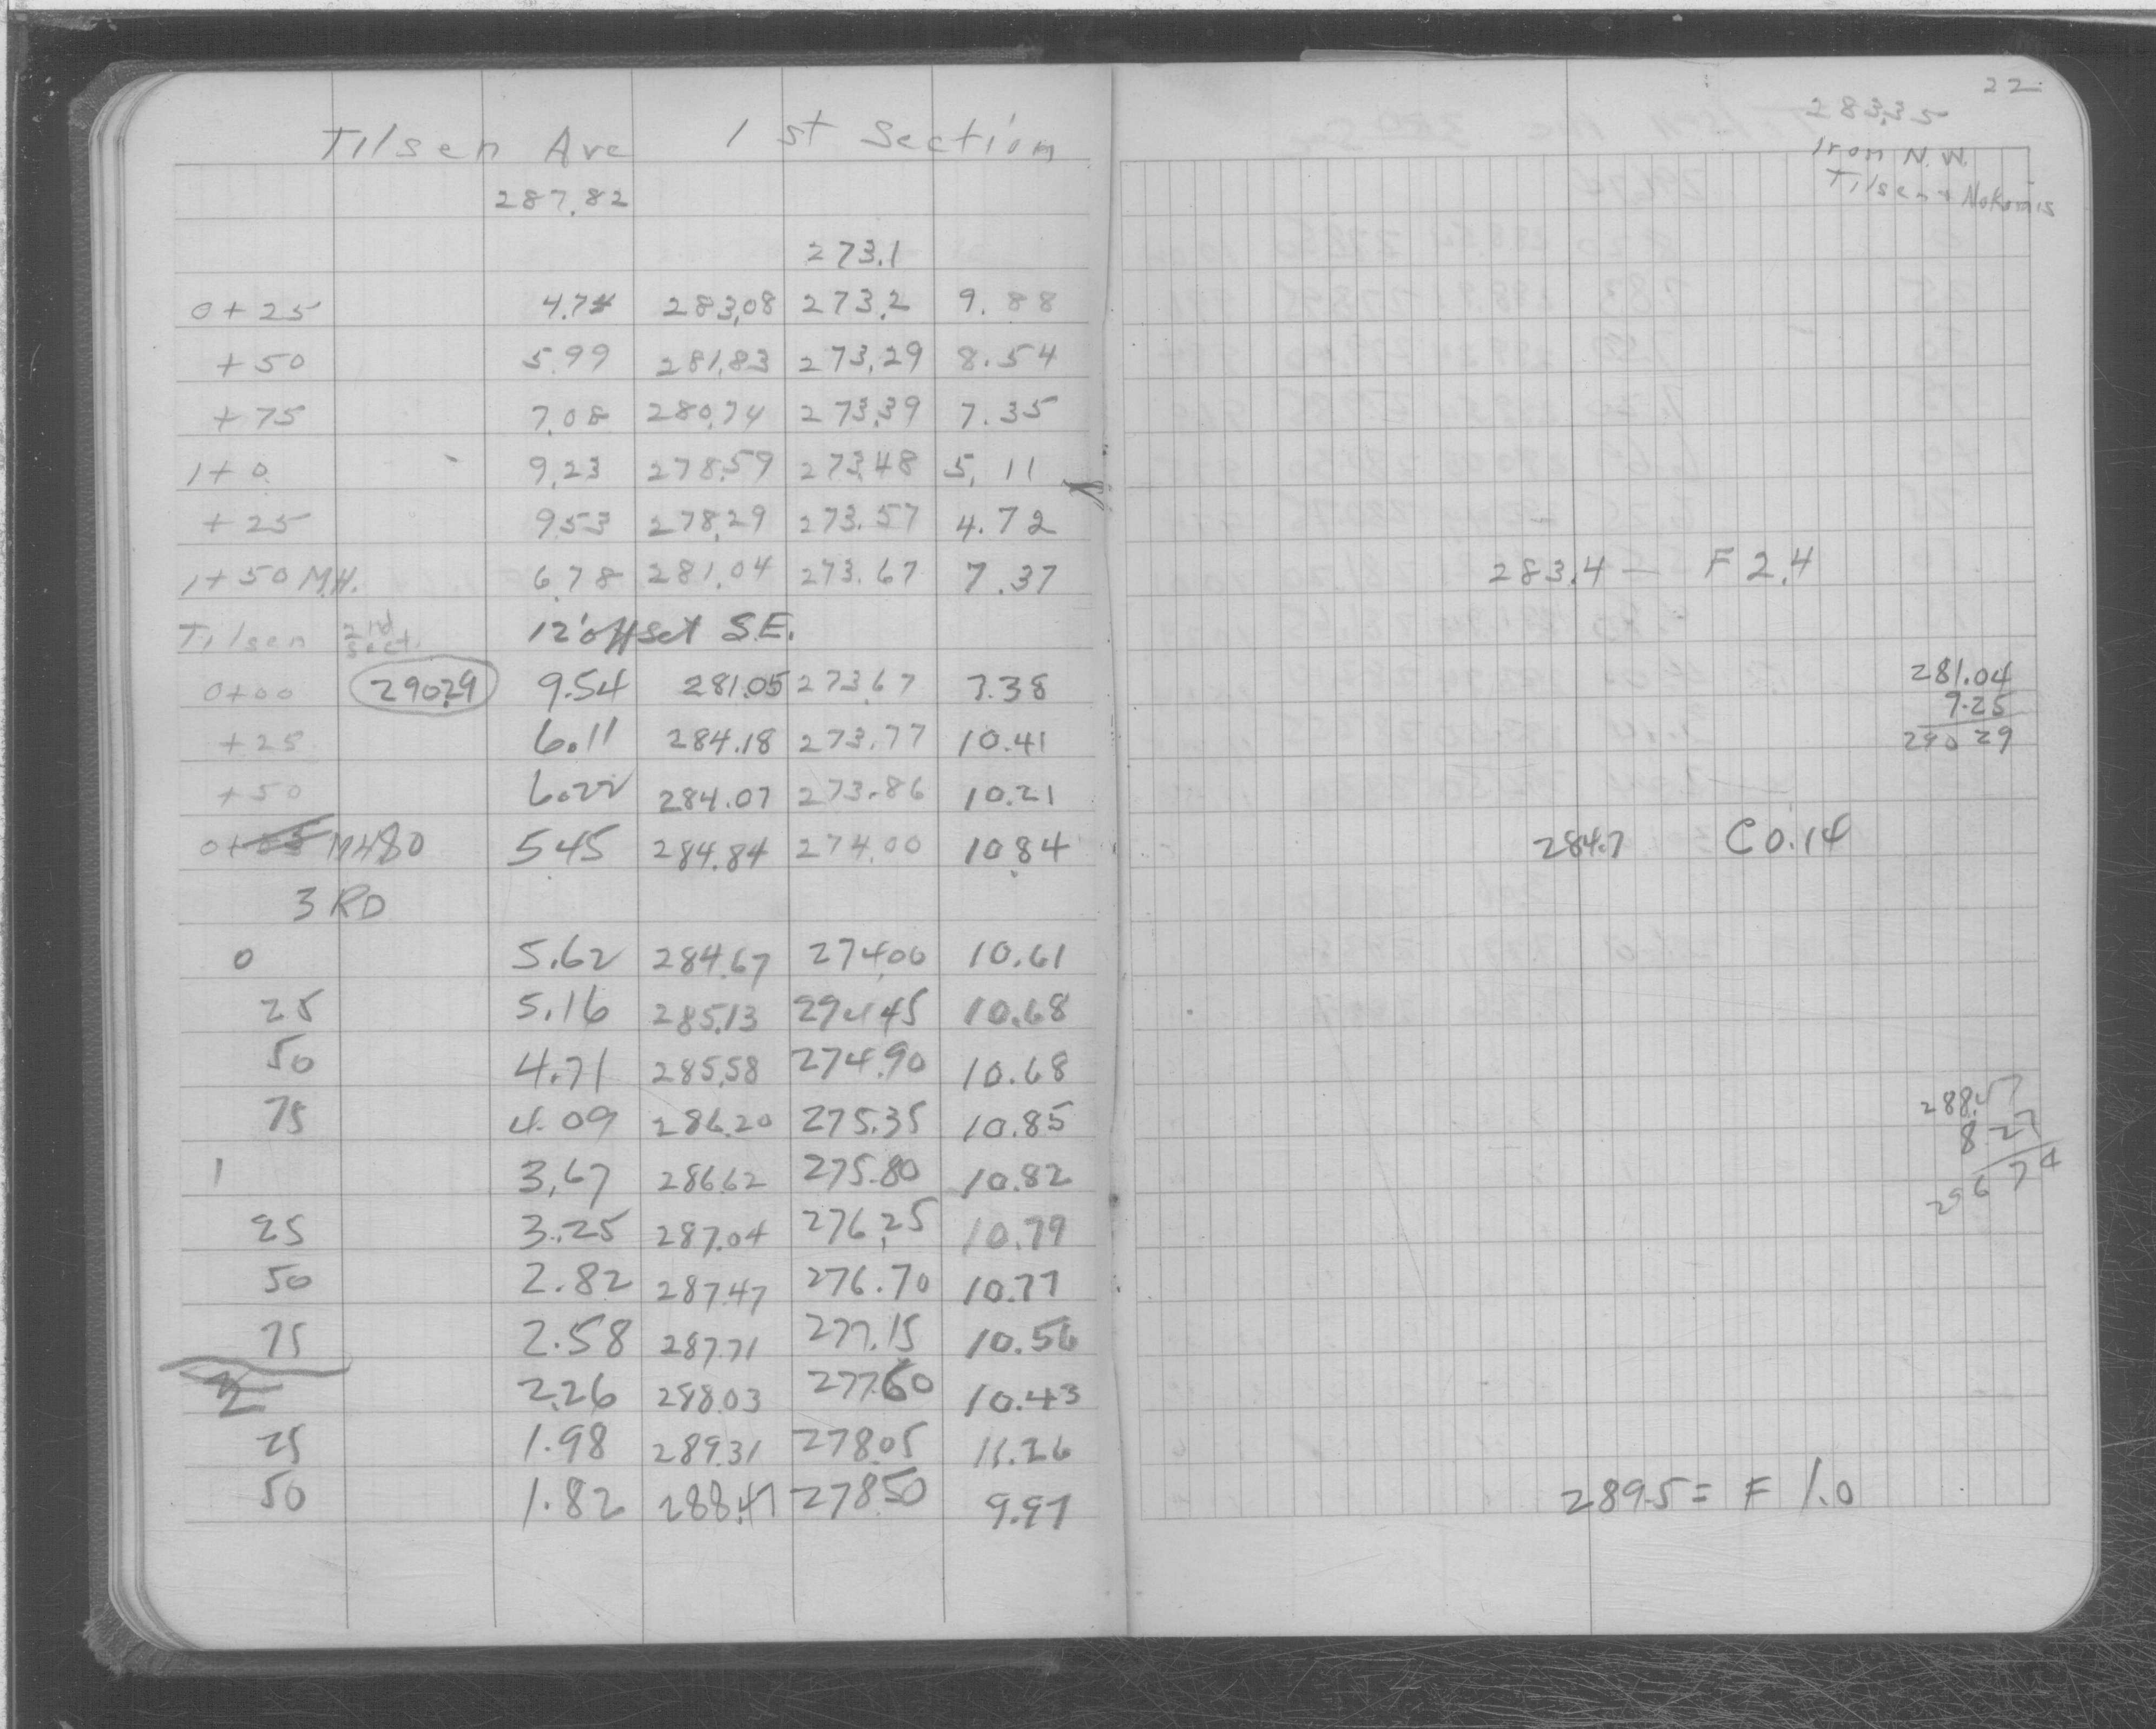 Tilsen Ave 1 st Section
287.82
273.1
0+25 4.74 283.08 273.2 9.88
+50 5.99 281.83 273.29 8.54
+75 7.08 280.74 273.39 7.35
1+0 9.23 278.59 273.48 5.11
+25 9.53 278.29 273.57 4.72
1+50 M.H. 6.78 281.04 273.67 7.37
Tilsen 2nd sect. 12' offset S.E.
0+00 290.29 9.54 281.05 273.67 7.38
+25 6.11 284.18 273.77 10.41
+50 6.22 284.07 273.86 10.21
0+ MH80 5.45 284.84 274.00 10.84
3 RD
0 5.62 284.67 274.06 10.61
25 5.16 285.13 274.45 10.68
50 4.71 285.58 274.90 10.68
75 4.09 286.20 275.35 10.85
1 3.67 286.62 275.80 10.82
25 3.25 287.04 276.25 10.79
50 2.82 287.47 276.70 10.77
75 2.58 287.71 277.15 10.56
2 2.26 288.03 277.60 10.43
25 1.98 289.31 278.05 11.26
50 1.82 288.47 278.50 9.97
22
283.35
Iron N.W.
Tilsen + Nokomis
283.4 — F 2.4
281.04
9.25
290 29
284.7 C 0.14
288.47
8.27
296 74
289.5 = F 1.0